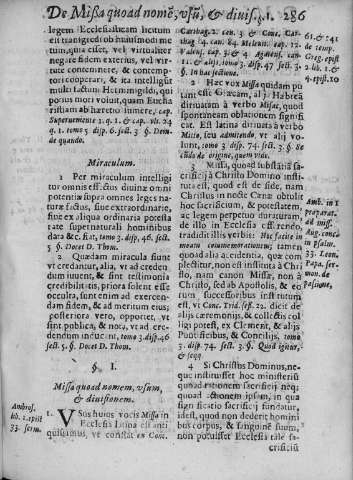 De Missa quoad nomẽ, vsũ, & diuis. §. 1. 286
legem Ecclesiasticam Iectum
est transgredi ob huiusmodi me
tum, quia esset, vel virtualiter
negare fidem exterius, vel vir
tute contemnere, & contemp
tori cooperari, & ita intelligit
multi factum Hermenigildi, qui
potius mori voluit, quam Eucha
ristiam ab haretico sumere, cap.
Superueniente 2. q. 1. & cap. vlt. 24
q. 1. tomo 3. disp. §. sect. 3. §. Dein-
de quando.
Miraculum.
1 Per miraculum intelligi
tur omnis effectus diuinæ omni
potentiæ supra omnes leges na-
turæ factus, siue extraordinario,
siue ex aliqua ordinaria potesta
te supernaturali hominibus
data &c. fiat, tomo 3. disp. 46. sect.
5. §. Docet D. Thom.
2 Quædam miracula fiunt
vt credantur, alia, vt ad creden-
dum iuuent, & sint testimonij
credibilitatis, priora solent esse
occulta, sunt enim ad exercen-
dam fidem, & ad meritum eius;
posteriora vero, opportet, vt
sint publica, & nota, vt ad cre-
dendum inducant, tomo 3. disp. 46
sect. 5. §. Docet D. Thom.
§. I.
Missa quoad nomem, vsum,
& diuisionem.
Ambros.
lib. 2. epist
33. serm.
1. Vsus huius vocis Missa in
Ecclesia latina est anti
quissimus, vt constat ex Conc.
Carthag. 2. can. 3. & Conc. Car-
thag. 4. can. 84. Meleuit. cap. 12
& Agathẽ. can. 21. & 47. & alijs
mult. tomo 3. disp. 47. sect. 3.
§. In hac sectione.
61. & 241
de temp.
Greg. epist
lib. 1. c. 12
& lib.
4. epist. 10
2 Hæc vox Missa quidam pu
tant esse Græcam, alij Hæbreã
diriuatam à verbo Misac, quod
spontaneam oblationem signifi
cat. Est latina diriuata à verbo
Mitto, seu admitendo, vt alij vo-
lunt, tomo 3. disp. 74. sect. 3. §. Se
cũda de origine, quem vide.
3 Missa, quoad substãtia sa-
crificij à Christo Domino insti-
tuta est, quod est de fide, nam
Christus in nocte Cœnæ obtulit
hoc sacrificium, & potestatem,
ac legem perpetuo duraturam,
de illo in Ecclesia est ferendo,
tradidit illis verbis: Hæc facite in
meam commemorationem; tamen
quoad alia accidentia, quæ com
plectitur, non est instituta à Chri
sto, nam canon Missæ, non à
Christo, sed ab Apostolis, & eo
rum successoribus institutum
est, vt Conc. Trid. sess. 22. dicit de
alijs cæremonijs, & collectis col
ligi potest, ex Clement, & alijs
Pontificibus, & Concilijs, tomo
3. disp. 74. sect. 3. §. Quod igitur,
& seqq
Amb. in 1
preparat.
ad miss.
Aug. conc.
in psalm.
33. Leon.
Papa. ser-
mon. de
pasione,
4 Si Christus Dominus, ne-
que instituisset hoc ministeriũ
quoad rationem sacrificij neq;
quoad actionem ipsam, in qua
significatio sacrificij fundatur,
idest, quod non dederit homini
bus corpus, & sanguinem suum,
non potuisset Ecclesia tale sa-
crificiũ